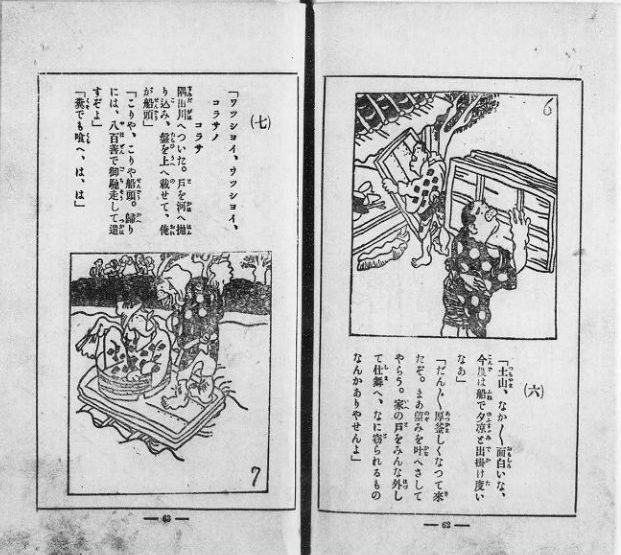 6
(六)
「土山、なか〱面白いな、
今度は船で夕凉と出掛け度い
なあ」
「だん〱厚釜しくなつて來
たぞ。まあ望みを叶へさして
やらう。家の戸をみんな外し
て仕舞へ、なに窃られるもの
なんかありやせんよ」
— 62 —
(七)
「ワツシヨイ、ワツシヨイ、
コラサノ
コラサ
隅田川へついた。戸を河へ抛
り込み、盤を上へ載せて、俺
が船頭」
「こりや、こりや船頭。歸り
には、八百善で御馳走して遣
すぞよ」
「糞でも喰へ、は、は」
7
— 63 —